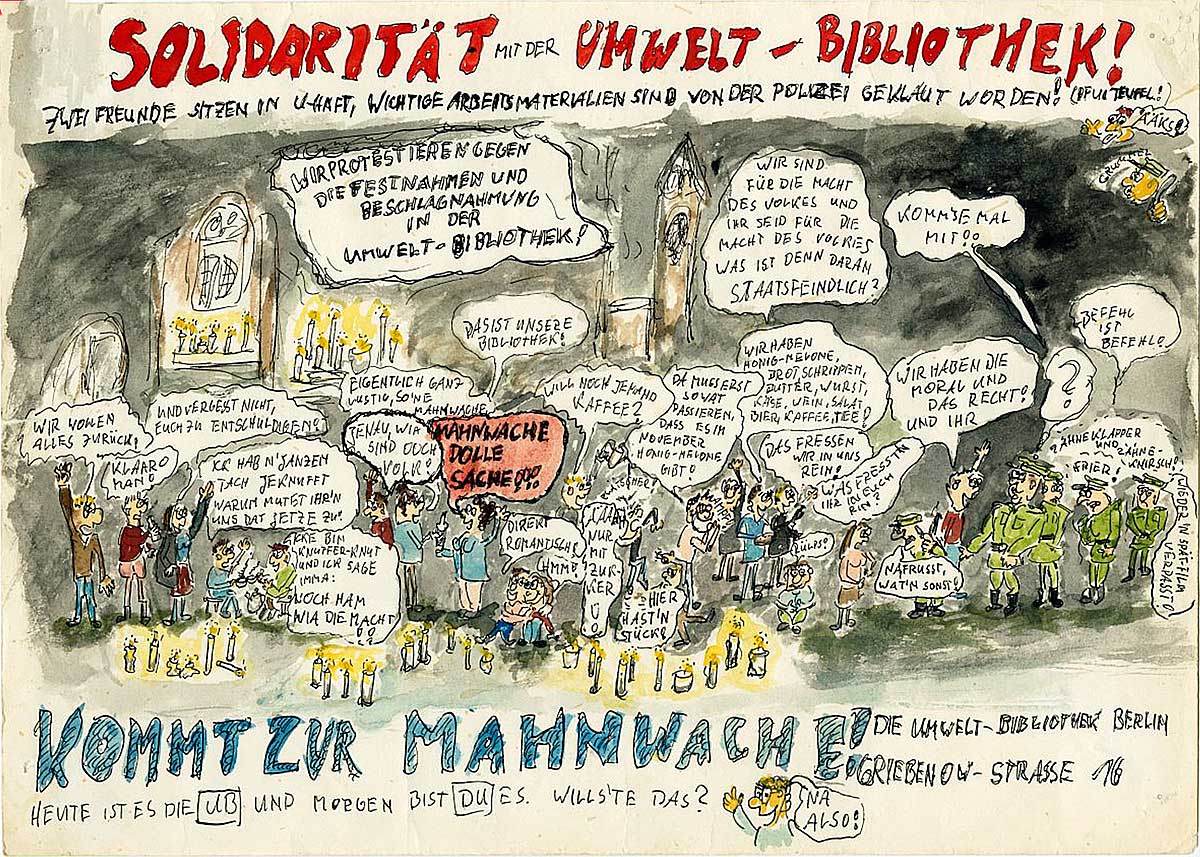 SOLIDARITÄT MIT DER UMWELT-BIBLIOTHEK!
ZWEI FREUNDE SITZEN IN U-HAFT, WICHTIGE ARBEITSMATERIALIEN SIND VON DER POLIZEI GEKLAUT WORDEN! (PFUI TEUFEL!)
ÄÄKS!
WIR PROTESTIEREN GEGEN
DIE FESTNAHMEN UND
BESCHLAGNAHMUNG
IN DER
UMWELT-BIBLIOTHEK!
WIR SIND
FÜR DIE MACHT
DES VOLKES UND
IHR SEID FÜR DIE
MACHT DES VOLKES
WAS IST DENN DARAN
STAATSFEINDLICH?
KOMM'SE MAL
MIT!
BEFEHL
IST
BEFEHL!
?
DAS IST UNSERE
BIBLIOTHEK!
WIR WOLLEN
ALLES ZURÜCK!
KLAARO
MAN!
UND VERGESST NICHT,
EUCH ZU ENTSCHULDIGEN!
EIGENTLICH GANZ
LUSTIG, SO'NE
MAHNWACHE
JENAU, WIA
SIND DOCH
VOLK!
MAHNWACHE
DOLLE
SACHE!!!
WILL NOCH JEMAND
KAFFEE?
DA MUSS ERST
SOWAT
PASSIEREN,
DASS ES IM
NOVEMBER
HONIG-MELONE
GIBT!
WIR HABEN
HONIG-MELONE,
BROT, SCHRIPPEN,
BUTTER, WURST,
KÄSE, WEIN, SALAT,
BIER, KAFFEE, TEE!
DAS FRESSEN
WIR IN UNS
REIN!
WAS FRESST'N
IHR IN EUCH
EIN?
WIR HABEN DIE
MORAL UND
DAS RECHT!
UND IHR
ZÄHNEKLAPPER
UND ZÄHNE-
KNIRSCH!
FRIER!
WIEDER IN SPÄT-FILM
VERPASST!
ICK HAB N' JANZEN
TACH JEKNUFFT
WARUM MUTET IHR'N
UNS DAT JETZE ZU?
ICKE BIN
KNUFFER-KNUT
UND ICK SAGE
IMMA:
NOCH HAM
WIA DIE MACHT
DIREKT
ROMANTISCH!
HMM!
NUR
MIT
ZUK-
KER
Ü!
HIER
HAST'N
STÜCK!
RÜLPS!
NA FRUSST,
WAT'N SONST!
KOMMT ZUR MAHNWACHE!
DIE UMWELT-BIBLIOTHEK BERLIN
GRIEBENOW-STRASSE 16
HEUTE IST ES DIE UB UND MORGEN BIST DU ES. WILLS'TE DAS?
NA
ALSO!